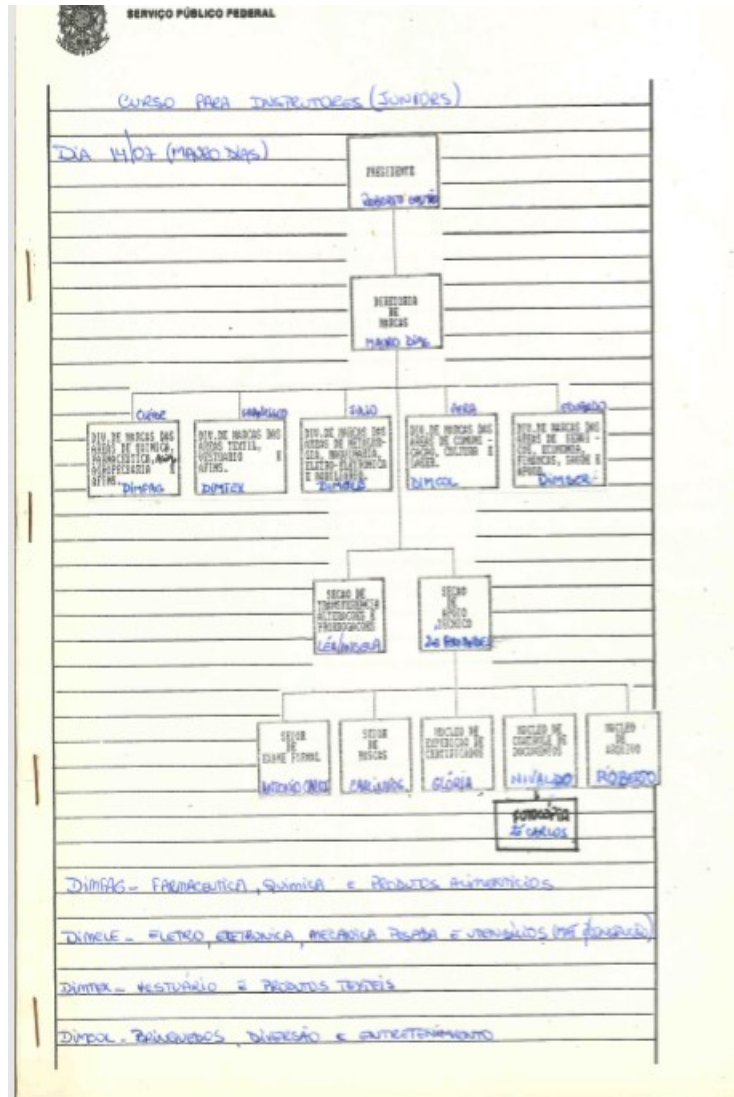 SERVIÇO PÚBLICO FEDERAL
CURSO PARA INSTRUTORES (JUNIORS)
DIA 14/07 (MAURO DIAS)
PRESIDENTE
ROBERTO
DIRETORIA
DE
MARCAS
MAURO DIAS
DIV. DE MARCAS DAS
AREAS DE QUIMICA,
FARMACEUTICA,
AGROPECUARIA E
AFINS.
DIMFAG
DIV. DE MARCAS DAS
AREAS TEXTIL,
VESTUARIO E
AFINS.
DIMTEX
JULIO
DIV. DE MARCAS DAS
AREAS DE METALUR-
GIA, MAQUINARIA,
ELETRO-ELETRONICA
E MOBILIARIO.
DIMELE
DIV. DE MARCAS DAS
AREAS DE COMUNI-
CACAO, CULTURA E
LAZER.
DIMCOL
EDUARDO
DIV. DE MARCAS DAS
AREAS DE SERVI-
COS, ECONOMIA,
FINANCAS, SAUDE E
APOIO.
DIMSER
SECAO DE
TRANSFERENCIA
ALTERACOES E
PRORROGACOES
SECAO
DE
APOIO
TECNICO
SETOR
DE
EXAME FORMAL
ANTONIO CARLOS
SETOR
DE
BUSCAS
CARLINHOS
NUCLEO DE
EXPEDICAO DE
CERTIFICADOS
GLÓRIA
NUCLEO DE
CONTROLE DE
DOCUMENTOS
NIVALDO
NUCLEO
DE
ARQUIVO
ROBERTO
FOTOCÓPIA
ZÉ CARLOS
DIMFAG - FARMACEUTICA, QUIMICA E PRODUTOS ALIMENTÍCIOS
DIMELE - ELETRO, ELETRONICA, MECANICA PESADA E UTENSÍLIOS (MAT. P/CONSTRUÇÃO)
DIMTEX - VESTUÁRIO E PRODUTOS TEXTEIS
DIMCOL - BRINQUEDOS, DIVERSÃO E ENTRETENIMENTO